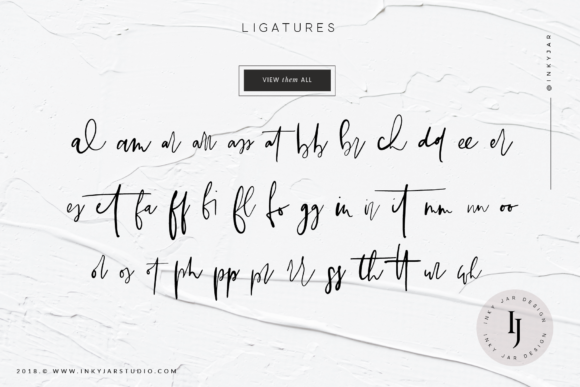 LIGATURES
VIEW them ALL
@INKYJAR
al am ar an ass at bb br ch dd ee er
es et fa ff fi fl fo gg in ir it mm nn oo
or os ot ph pp pr rr ss th tt ur wh
INKY JAR DESIGN INKY JAR DESIGN
IJ
2018 © WWW.INKYJARSTUDIO.COM